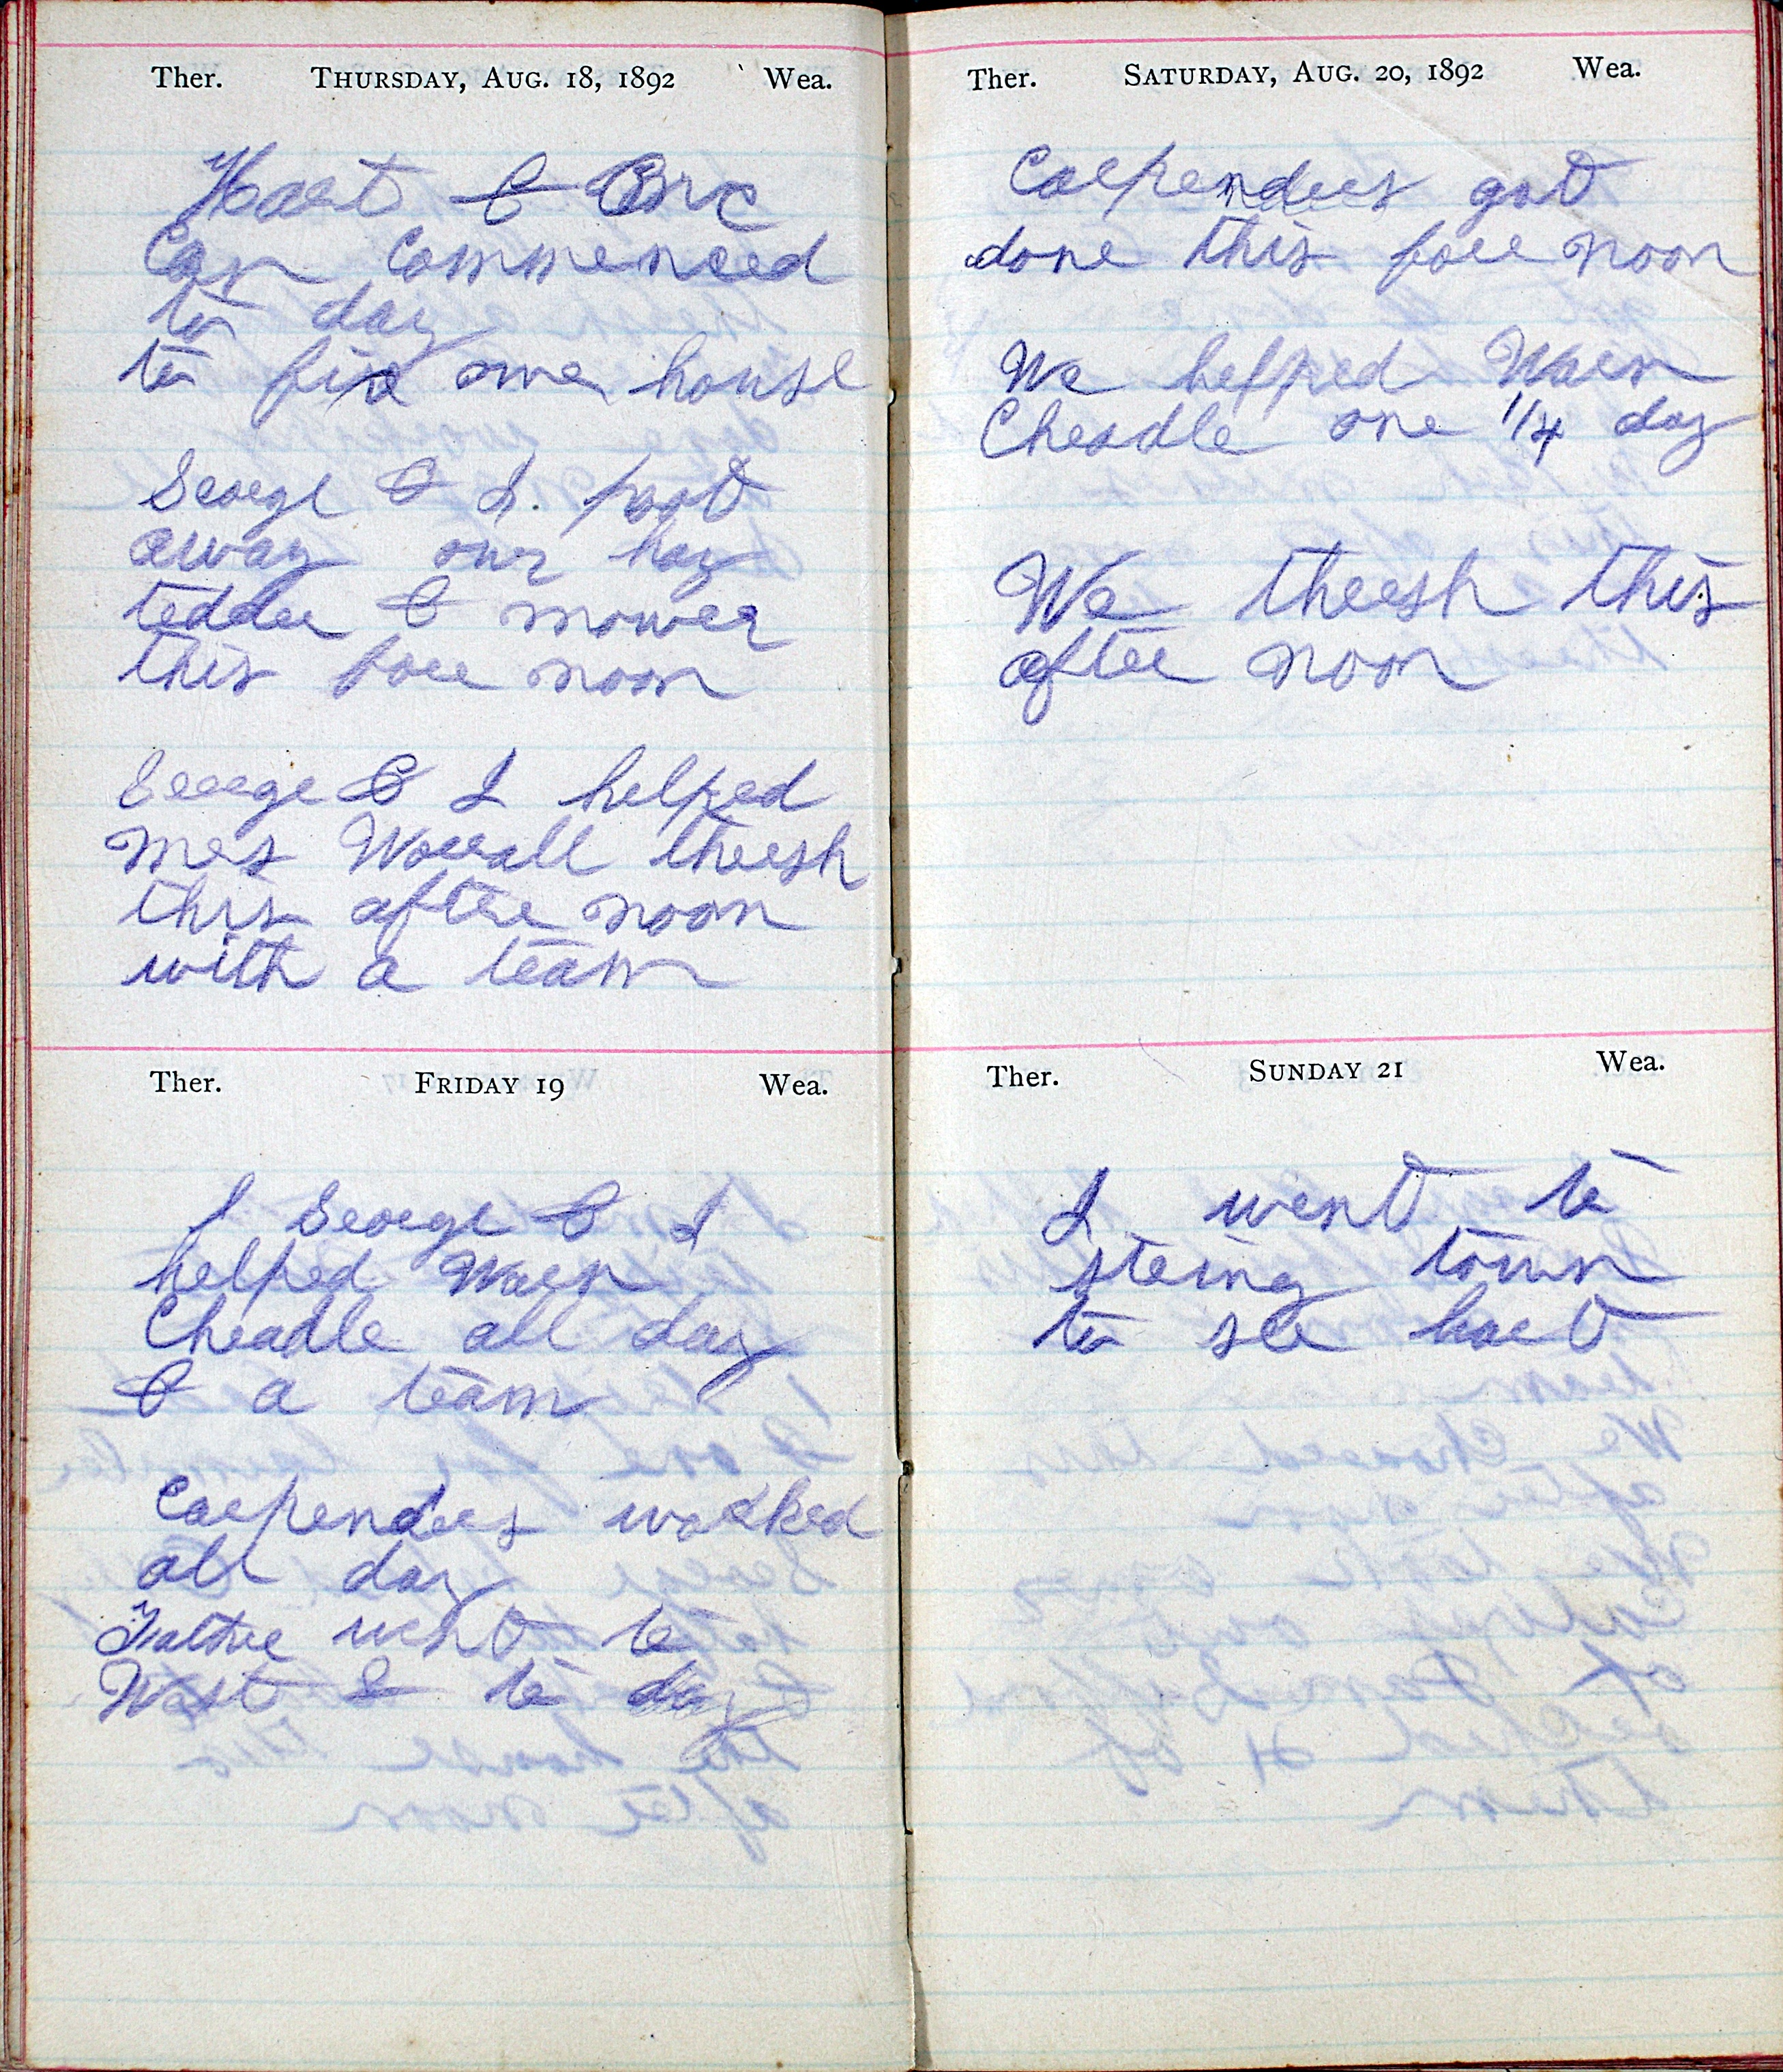 Ther. THURSDAY, AUG. 18, 1892 Wea.
Hart &
Can Commenced
to day
to fix our house
George & I. poot
away our hay
tedder & mower
this fore noon
George & I helped
Mrs Worrall thresh
this after noon
with a team
Ther. FRIDAY 19 Wea.
I George & I
helped Warn
Cheadle all day
& a team
Carpenders worked
all day
Father went to
West & to day
Ther. SATURDAY, AUG. 20, 1892 Wea.
Carpenders got
done this fore noon
We helped Warn
Cheadle one 1/4 day
We thresh this
after noon
Ther. SUNDAY 21 Wea.
I went to
string town
to see hart